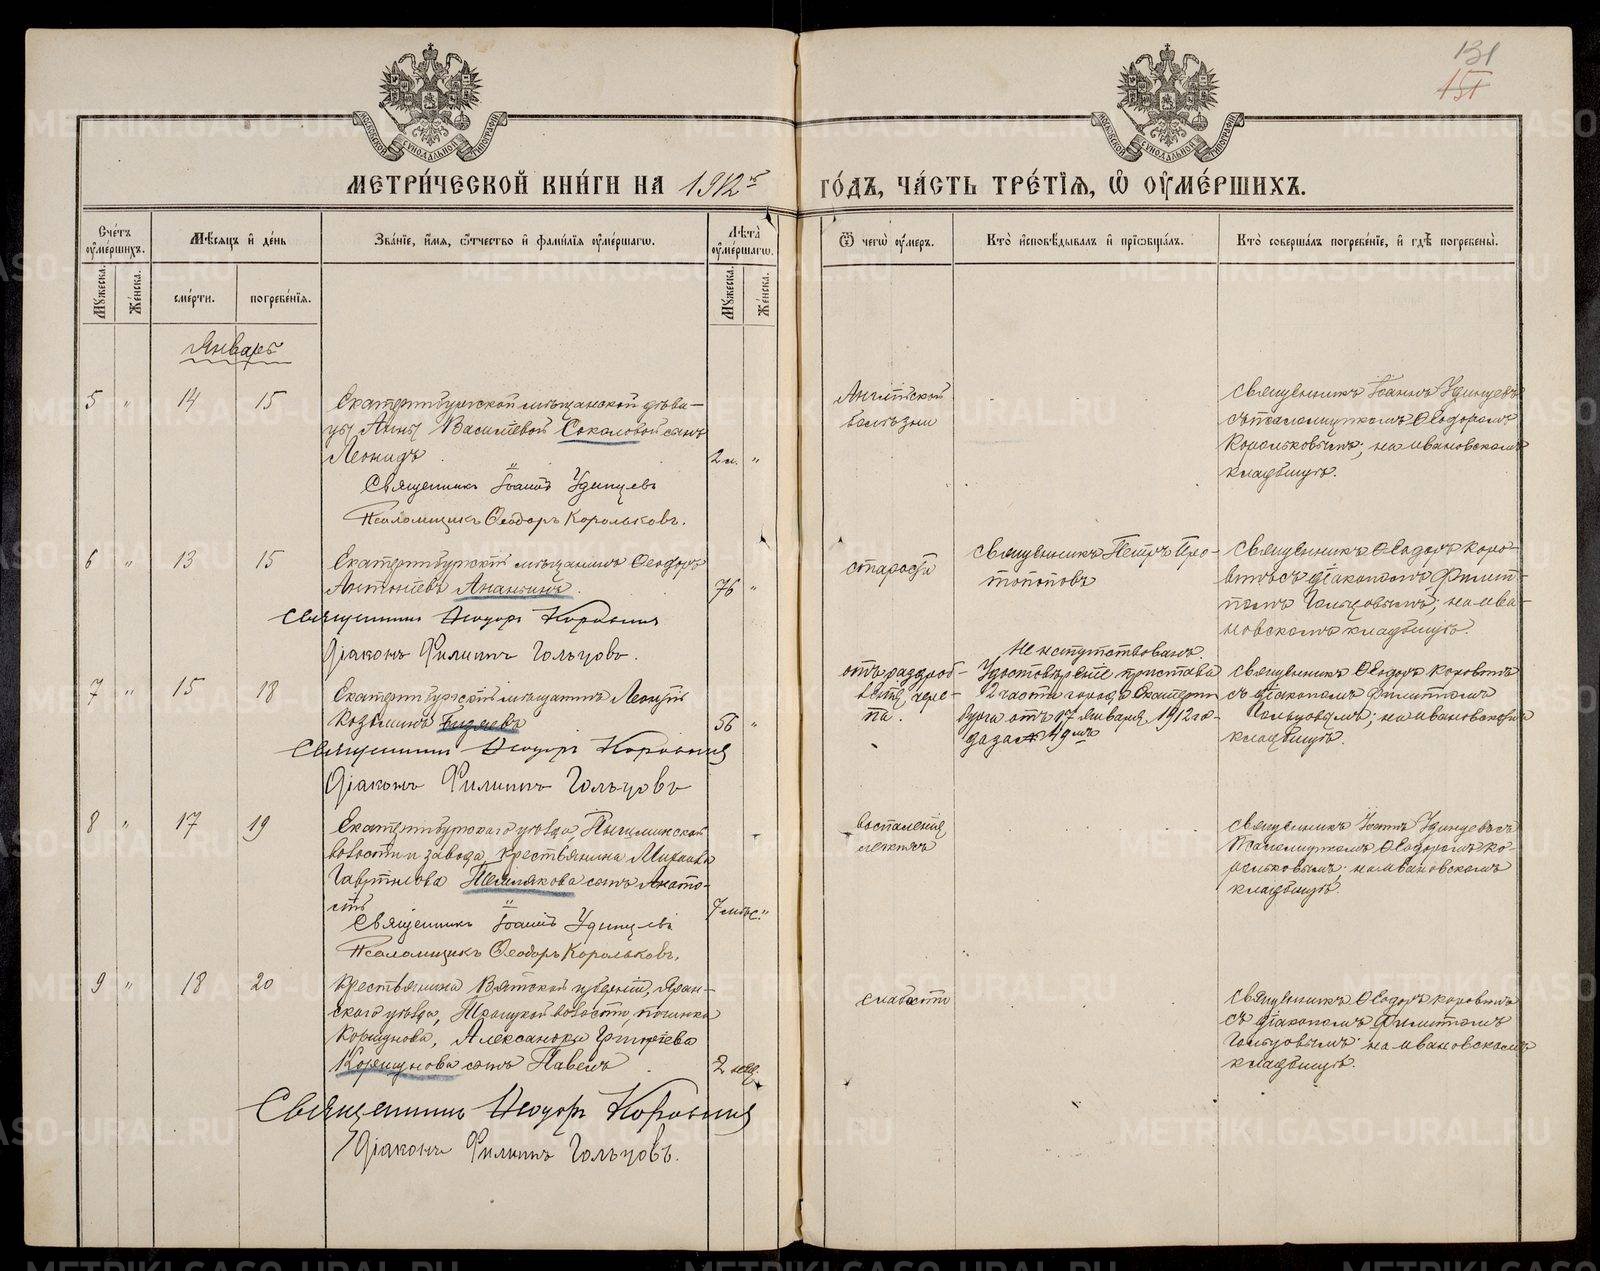 131
151
МОСКОВСКОЙ СѴНОДАЛЬНОЙ ТИПОГРАФІИ
МОСКОВСКОЙ СѴНОДАЛЬНОЙ ТИПОГРАФІИ
МЕТРИ́ЧЕСКОЙ КНИ́ГИ НА 1912й ГО́ДЪ, ЧА́СТЬ ТРЕ́ТІѦ, Ѡ҆ ОУ҆МЕ́РШИХЪ.
Сче́тъ оу҆ме́ршихъ.
Мꙋжеска.
Же́нска.
Мѣ́сѧцъ и҆ де́нь
сме́рти.
погребе́нїѧ.
Зва́нїе, и҆́мѧ, ѻ҆́тчество и҆ фами́лїѧ оу҆ме́ршагѡ.
Лѣ́та оу҆ме́ршагѡ.
Мꙋжеска.
Же́нска.
Ѿ чегѡ̀ оу҆́меръ.
Кто̀ и҆сповѣ́дывалъ и҆ прїѡбща́лъ.
Кто̀ соверша́лъ погребе́нїе, и҆ гдѣ̀ погребены̀.
Январь
5 " 14 15
Екатеринбургской мѣщанской дѣви-
цы Анны Васильевой Соколовой сынъ
Леонидъ
2 м. "
Священникъ Іоаннъ Удинцевъ
Псаломщикъ Ѳеодоръ Корольковъ.
Англійской
болѣзни
Священникъ Іоаннъ Удинцевъ
съ псаломщикомъ Ѳеодоромъ
Корольковымъ; на Ивановскомъ
кладбищѣ.
6 " 13 15
Екатеринбургскій мѣщанинъ Ѳеодоръ
Антоніевъ Ананьинъ.
76 "
Священникъ Ѳеодоръ Коровинъ
Діаконъ Филиппъ Гольцовъ.
старости
Священникъ Петръ Про-
топоповъ
Священникъ Ѳеодоръ Коро-
винъ съ діакономъ Филип-
помъ Гольцовымъ; на Ива-
новскомъ кладбищѣ.
7 " 15 18
Екатеринбургскій мѣщанинъ Леонтій
Козьминъ
56 "
Священникъ Ѳеодоръ Коровинъ
Діаконъ Филиппъ Гольцовъ
отъ раздроб-
ленія чере-
па.
Не напутствованъ.
Удостовѣреніе пристава
2 части города Екатерин
бурга отъ 17 Января 1912 го-
да за № 49мъ
Священникъ Ѳеодоръ Коровинъ
съ діакономъ Филиппомъ
Гольцовымъ; на Ивановскомъ
кладбищѣ.
8 " 17 19
Екатеринбургскаго уѣзда, Пышминской
волости и завода, крестьянина Михаила
Гаврилова Пешлякова сынъ Анато-
лій
7 мѣс. "
Священникъ Іоаннъ Удинцевъ
Псаломщикъ Ѳеодоръ Корольковъ.
воспаленія
легкихъ
Священникъ Іоаннъ Удинцевъ съ
Псаломщикомъ Ѳеодоромъ Ко-
рольковымъ; на Ивановскомъ
кладбищѣ.
9 " 18 20
Крестьянина Вятской губерніи, Яран-
скаго уѣзда, Троицкой волости, починка
Коршунова, Александра Григорьева
Коршунова сынъ Павелъ
2 нед.
Священникъ Ѳеодоръ Коровинъ
Діаконъ Филиппъ Гольцовъ.
слабости
Священникъ Ѳеодоръ Коровинъ
съ діакономъ Филиппомъ
Гольцовымъ; на Ивановскомъ
кладбищѣ.
METRIKI.GASO-URAL.RU